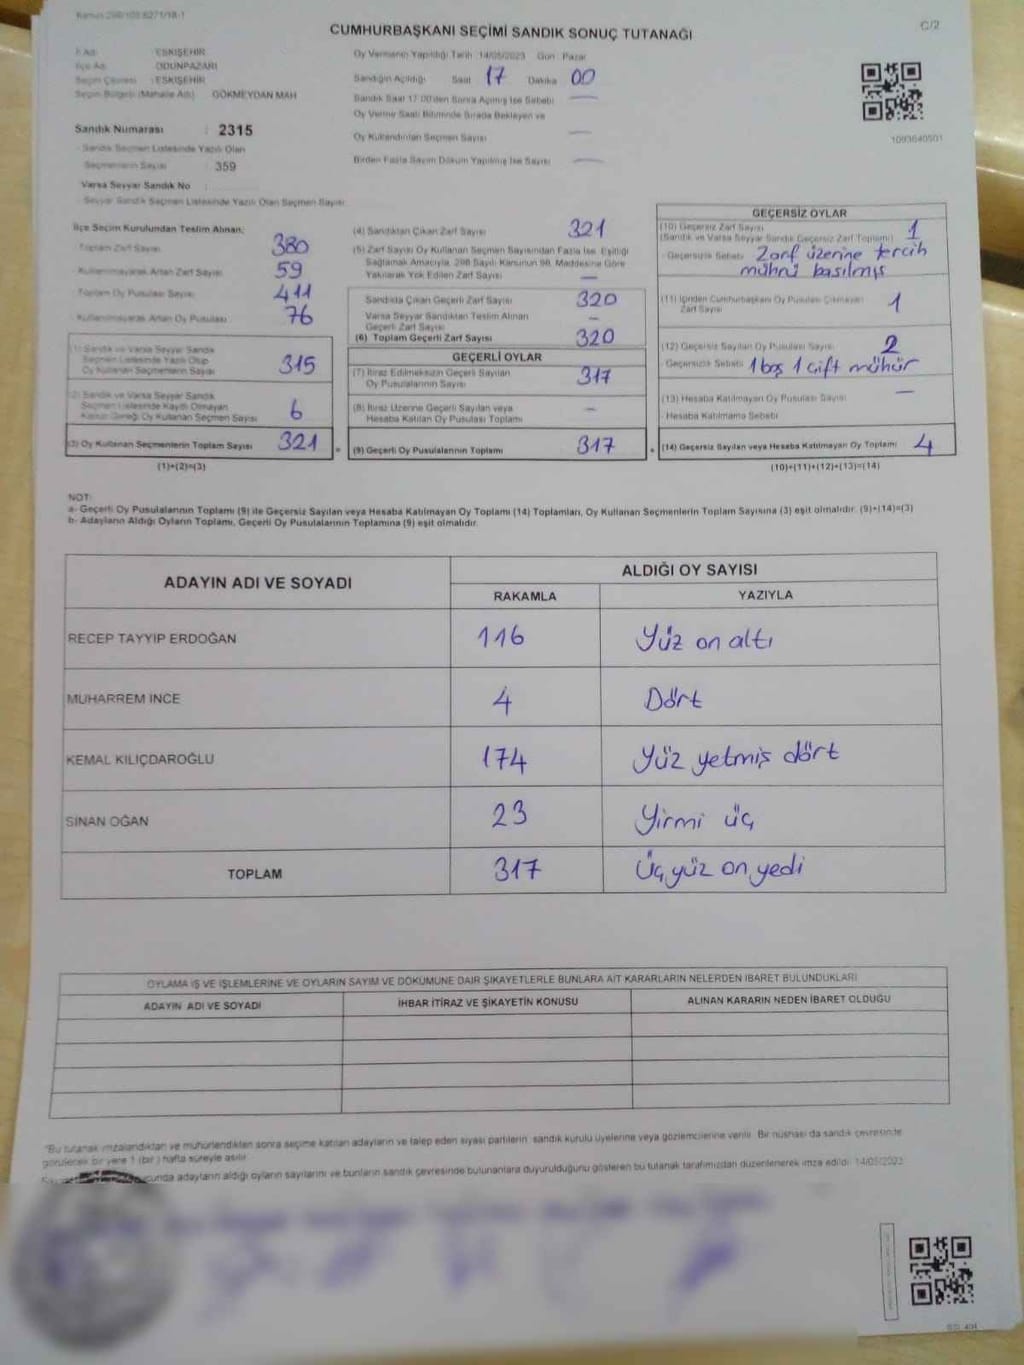 C/2
CUMHURBAŞKANI SEÇİMİ SANDIK SONUÇ TUTANAĞI
İl Adı : ESKİŞEHİR
İlçe Adı : ODUNPAZARI
Seçim Çevresi : ESKİŞEHİR
Seçim Bölgesi (Mahalle Adı) : GÖKMEYDAN MAH
Sandık Numarası : 2315
Sandık Seçmen Listesinde Yazılı Olan
Seçmenlerin Sayısı : 359
Varsa Seyyar Sandık No :
Seyyar Sandık Seçmen Listesinde Yazılı Olan Seçmen Sayısı:
Oy Vermenin Yapıldığı Tarih 14/05/2023 Gün Pazar
Sandığın Açıldığı Saat 17 Dakika 00
Sandık Saat 17.00'den Sonra Açılmış İse Sebebi —
Oy Verme Saati Bitiminde Sırada Bekleyen ve
Oy Kullandırılan Seçmen Sayısı —
Birden Fazla Sayım Döküm Yapılmış İse Sayısı —
1093640501
İlçe Seçim Kurulundan Teslim Alınan:
Toplam Zarf Sayısı 380
Kullanılmayarak Artan Zarf Sayısı 59
Toplam Oy Pusulası Sayısı 411
Kullanılmayarak Artan Oy Pusulası 76
(1) Sandık ve Varsa Seyyar Sandık
Seçmen Listesinde Yazılı Olup
Oy Kullanan Seçmenlerin Sayısı 315
(2) Sandık ve Varsa Seyyar Sandık
Seçmen Listesinde Kayıtlı Olmayan
Kanun Gereği Oy Kullanan Seçmen Sayısı 6
(3) Oy Kullanan Seçmenlerin Toplam Sayısı 321
(1)+(2)=(3)
(4) Sandıktan Çıkan Zarf Sayısı 321
(5) Zarf Sayısı Oy Kullanan Seçmen Sayısından Fazla İse, Eşitliği
Sağlamak Amacıyla, 298 Sayılı Kanunun 98. Maddesine Göre
Yakılarak Yok Edilen Zarf Sayısı —
Sandıkta Çıkan Geçerli Zarf Sayısı 320
Varsa Seyyar Sandıktan Teslim Alınan
Geçerli Zarf Sayısı —
(6) Toplam Geçerli Zarf Sayısı 320
GEÇERLİ OYLAR
(7) İtiraz Edilmeksizin Geçerli Sayılan
Oy Pusulalarının Sayısı 317
(8) İtiraz Üzerine Geçerli Sayılan veya
Hesaba Katılan Oy Pusulası Toplamı —
= (9) Geçerli Oy Pusulalarının Toplamı 317
GEÇERSİZ OYLAR
(10) Geçersiz Zarf Sayısı 1
(Sandık ve Varsa Seyyar Sandık Geçersiz Zarf Toplamı)
Geçersizlik Sebebi Zarf üzerine tercih
mührü basılmış
(11) İçinden Cumhurbaşkanı Oy Pusulası Çıkmayan
Zarf Sayısı 1
(12) Geçersiz Sayılan Oy Pusulası Sayısı 2
Geçersizlik Sebebi 1 boş 1 çift mühür
(13) Hesaba Katılmayan Oy Pusulası Sayısı —
Hesaba Katılmama Sebebi
+ (14) Geçersiz Sayılan veya Hesaba Katılmayan Oy Toplamı 4
(10)+(11)+(12)+(13)=(14)
NOT:
a- Geçerli Oy Pusulalarının Toplamı (9) ile Geçersiz Sayılan veya Hesaba Katılmayan Oy Toplamı (14) Toplamları, Oy Kullanan Seçmenlerin Toplam Sayısına (3) eşit olmalıdır. (9)+(14)=(3)
b- Adayların Aldığı Oyların Toplamı, Geçerli Oy Pusulalarının Toplamına (9) eşit olmalıdır.
ADAYIN ADI VE SOYADI
ALDIĞI OY SAYISI
RAKAMLA YAZIYLA
RECEP TAYYİP ERDOĞAN 116 Yüz on altı
MUHARREM İNCE 4 Dört
KEMAL KILIÇDAROĞLU 174 Yüz yetmiş dört
SİNAN OĞAN 23 Yirmi üç
TOPLAM 317 Üç yüz on yedi
OYLAMA İŞ VE İŞLEMLERİNE VE OYLARIN SAYIM VE DÖKÜMÜNE DAİR ŞİKAYETLERLE BUNLARA AİT KARARLARIN NELERDEN İBARET BULUNDUKLARI
ADAYIN ADI VE SOYADI İHBAR İTİRAZ VE ŞİKAYETİN KONUSU ALINAN KARARIN NEDEN İBARET OLDUĞU
"Bu tutanak imzalandıktan ve mühürlendikten sonra seçime katılan adayların ve talep eden siyasi partilerin sandık kurulu üyelerine veya gözlemcilerine verilir. Bir nüshası da sandık çevresinde
görülecek bir yere 1 (bir) hafta süreyle asılır.
adayların aldığı oyların sayılarını ve bunların sandık çevresinde bulunanlara duyurulduğunu gösteren bu tutanak tarafımızdan düzenlenerek imza edildi. 14/05/2023